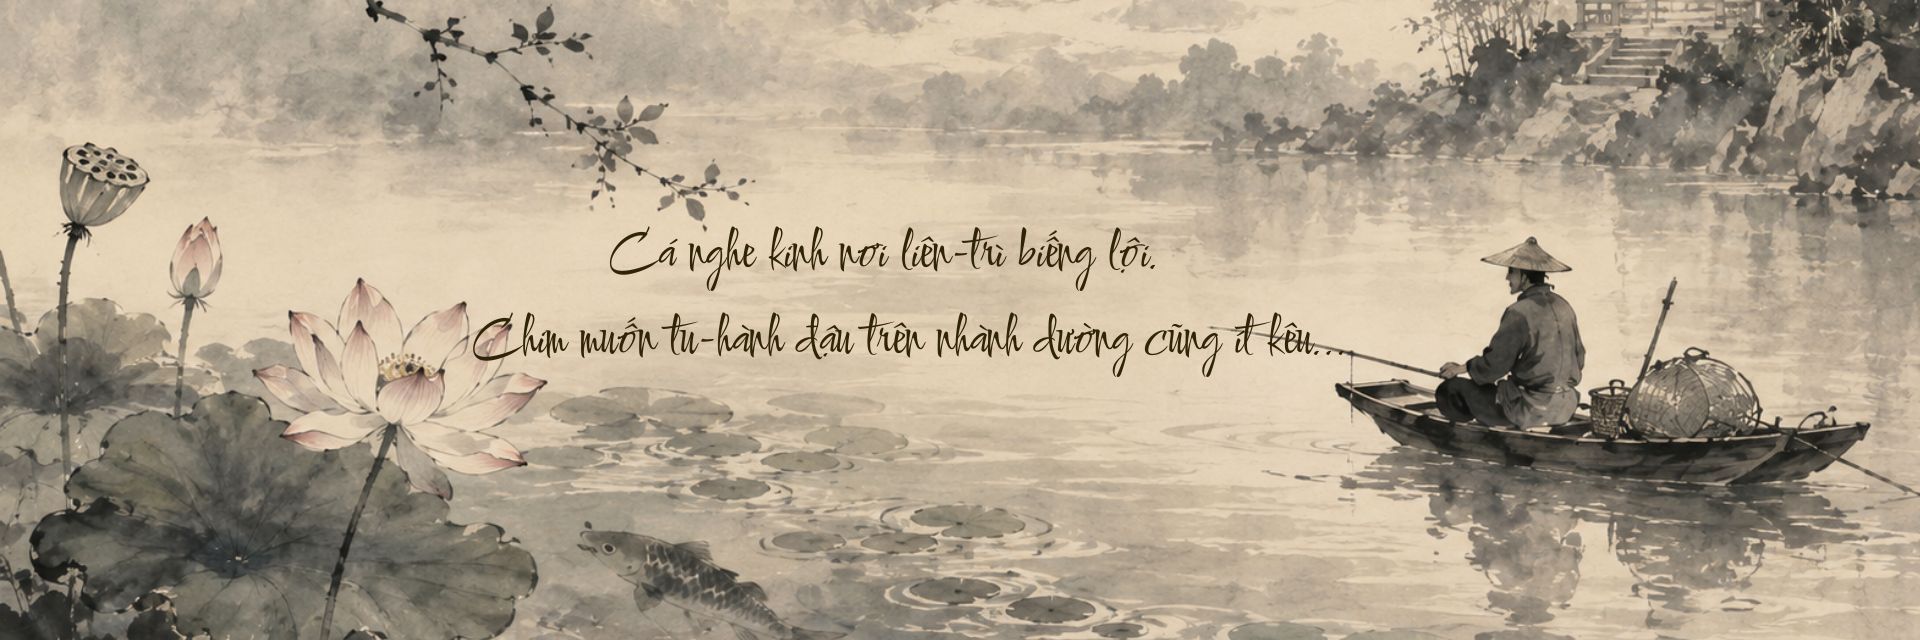 Cá nghe kinh nơi liên-trì biếng lội.
Chim muốn tu-hành đâu trên nhành dường cũng ít kêu...